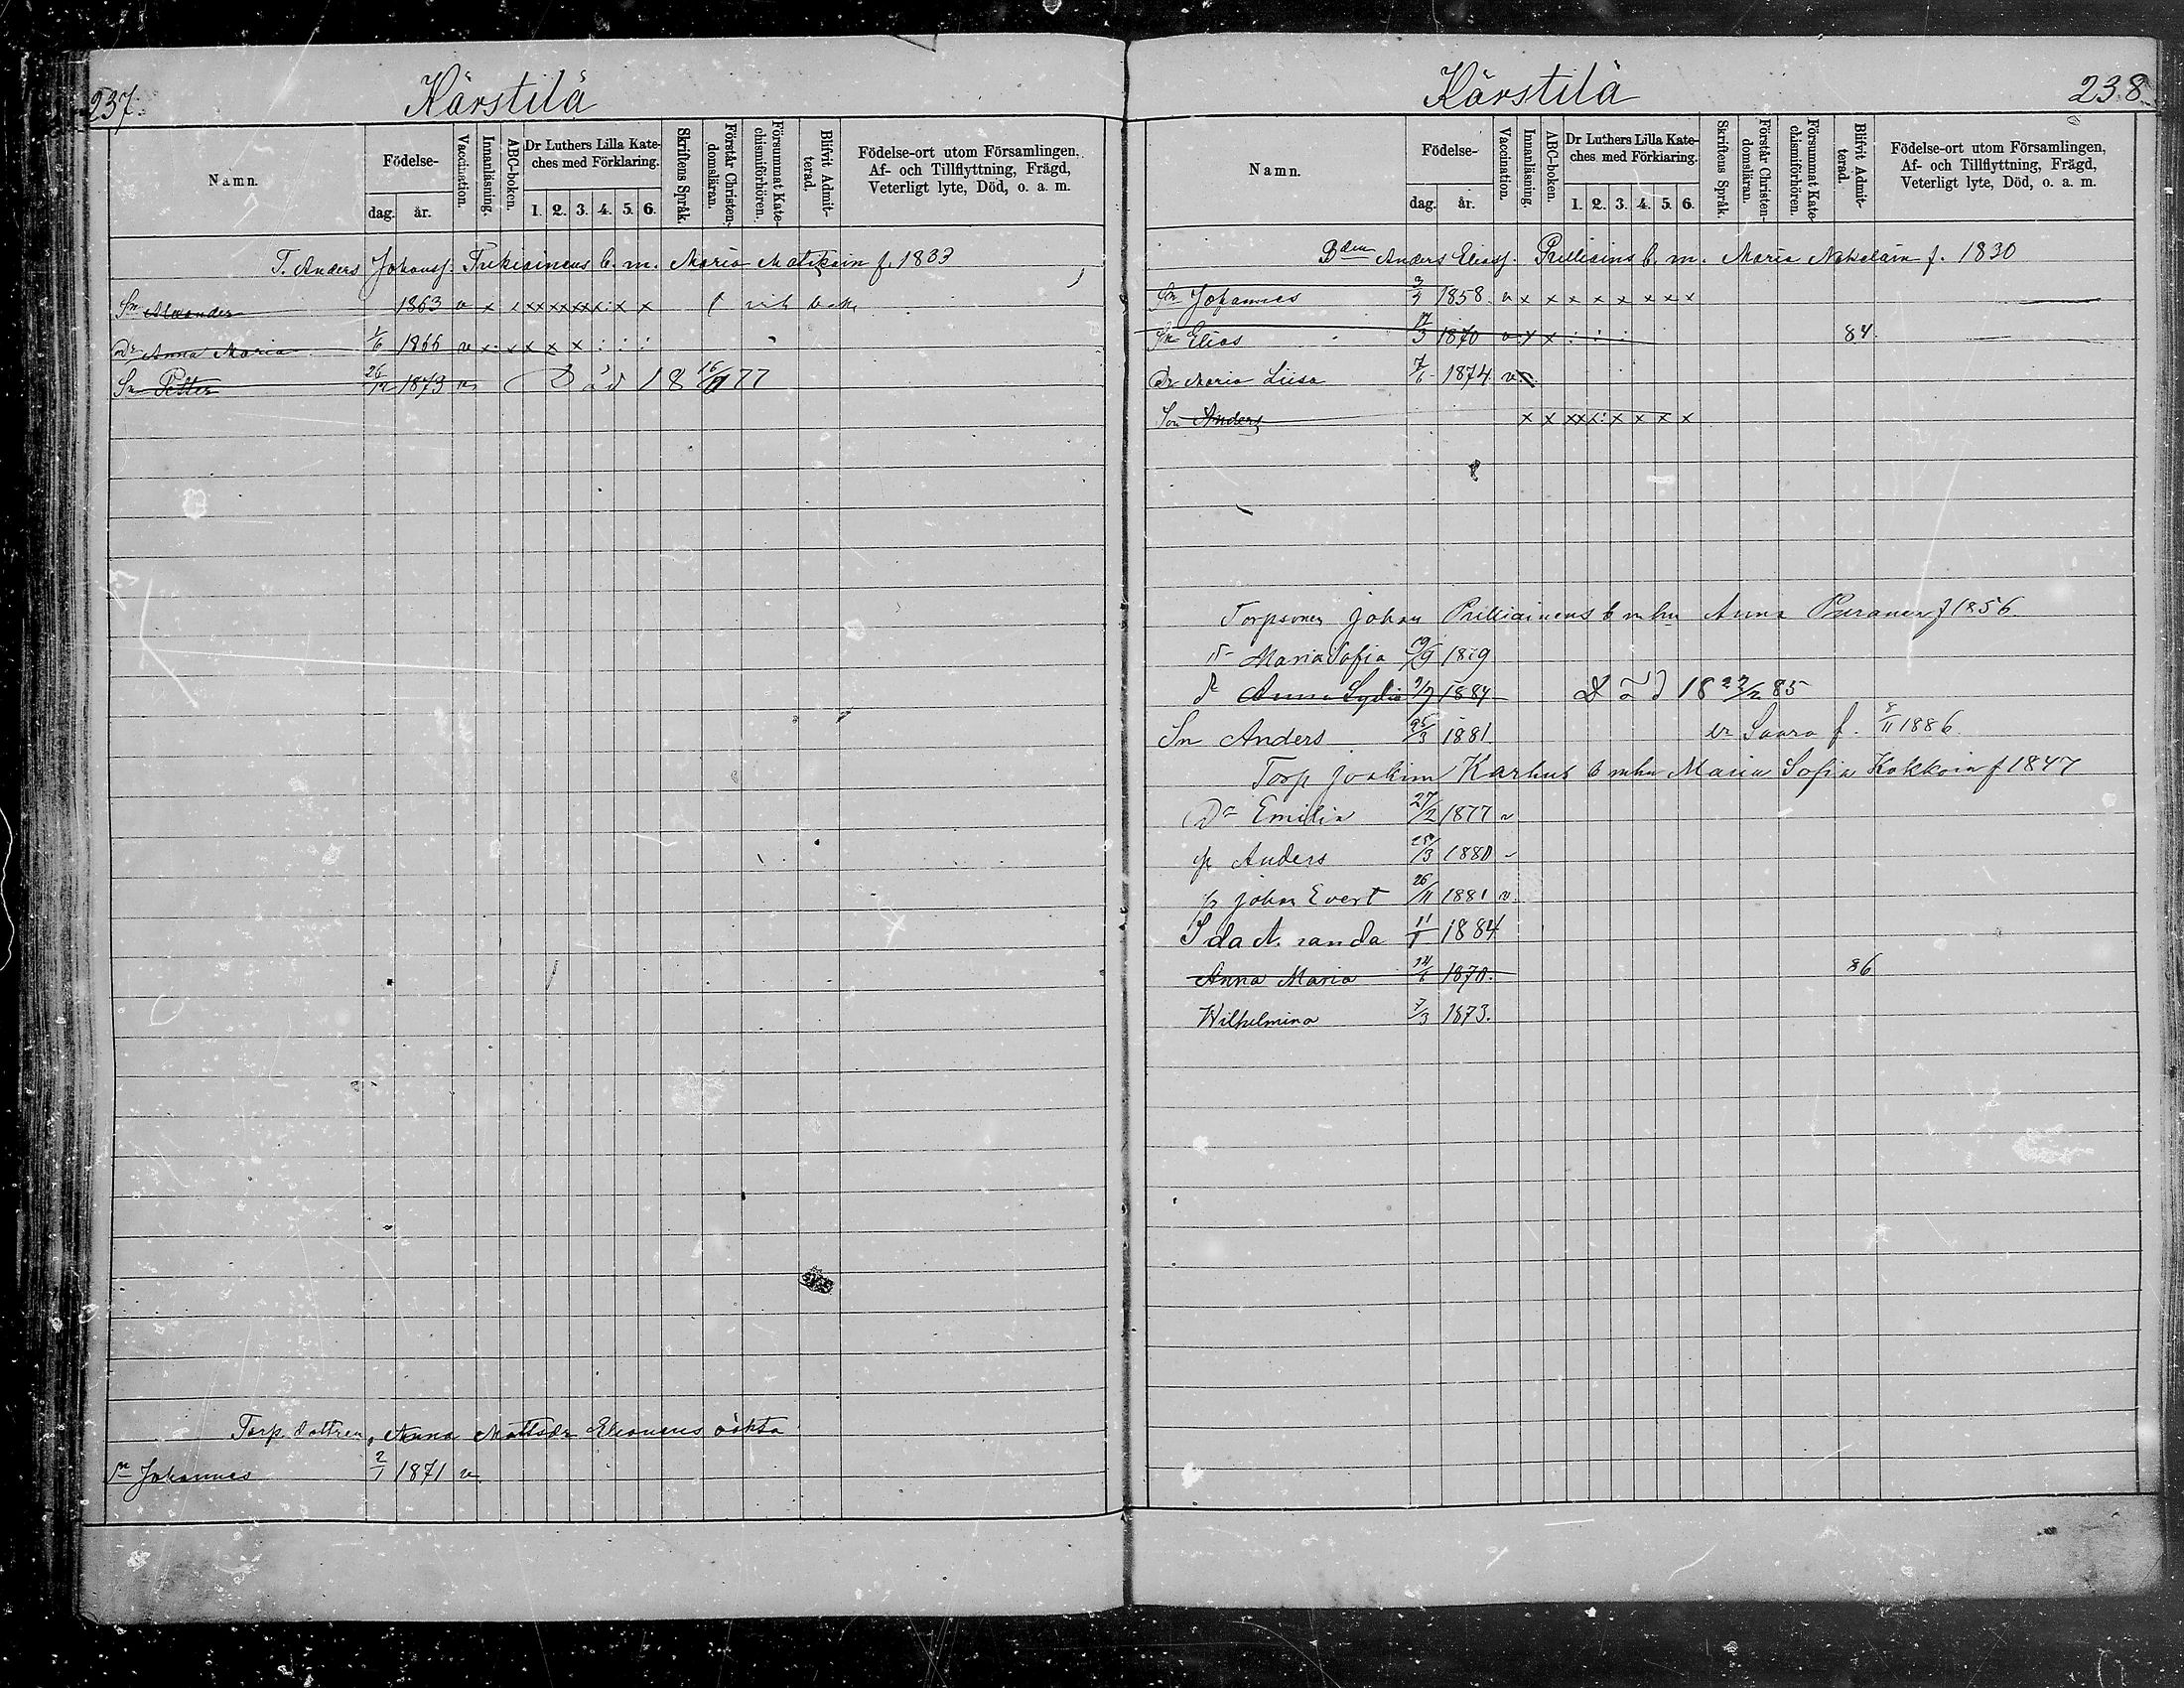 237.
Kärstilä
Namn.
Födelse-
dag.
år.
Vaccination.
Innanläsning.
ABC-boken.
Dr Luthers Lilla Kate-
ches med Förklaring.
1. 2. 3. 4. 5. 6.
Skriftens Språk.
Förstår Christen-
domsläran.
Försummat Kate-
chismiförhören.
Blifvit Admit-
terad.
Födelse-ort utom Församlingen,
Af- och Tillflyttning, Frägd,
Veterligt lyte, Död, o. a. m.
T. Anders Johanss. b. m. Maria f. 1833
Sn Alexander 1863 v x x x x x x x x x
Dr Anna Maria 1/6 1866 v x x x x x : : :
Sn Petter 26/12 1873 v Död 18 16/7 77
Torp. dottren Anna Mattsdr oäkta
Sn Johannes 2/1 1871 v
238.
Kärstilä
Namn.
Födelse-
dag.
år.
Vaccination.
Innanläsning.
ABC-boken.
Dr Luthers Lilla Kate-
ches med Förklaring.
1. 2. 3. 4. 5. 6.
Skriftens Språk.
Förstår Christen-
domsläran.
Försummat Kate-
chismiförhören.
Blifvit Admit-
terad.
Födelse-ort utom Församlingen,
Af- och Tillflyttning, Frägd,
Veterligt lyte, Död, o. a. m.
Bden Anders Eliass. b. m. Maria f. 1830
Sn Johannes 1858 v x x x x x x x x
Sn Elias 17/3 1870 v x x : : : 84
Dr Maria Liisa 7/6 1874 v
Son Anders x x x x x : x x x x
Torpsonen Johan Pulliainens b m hu Anna Puranen f 1856
Dr Maria Sofia 1879
Dr Anna Lydia 1884 Död 18 22/2 85
Sn Anders 25/3 1881 Dr Saara f. 8/11 1886
Torp Joakim Karhus b mhu Maria Sofia Kokkoin f 1847
Dr Emilia 27/2 1877 v
Sn Anders 25/3 1880 v
Sn Johan Evert 26/11 1881 v
Ida A. 11/1 1884
Anna Maria 14/6 1870. 86
Wilhelmina 7/3 1873.